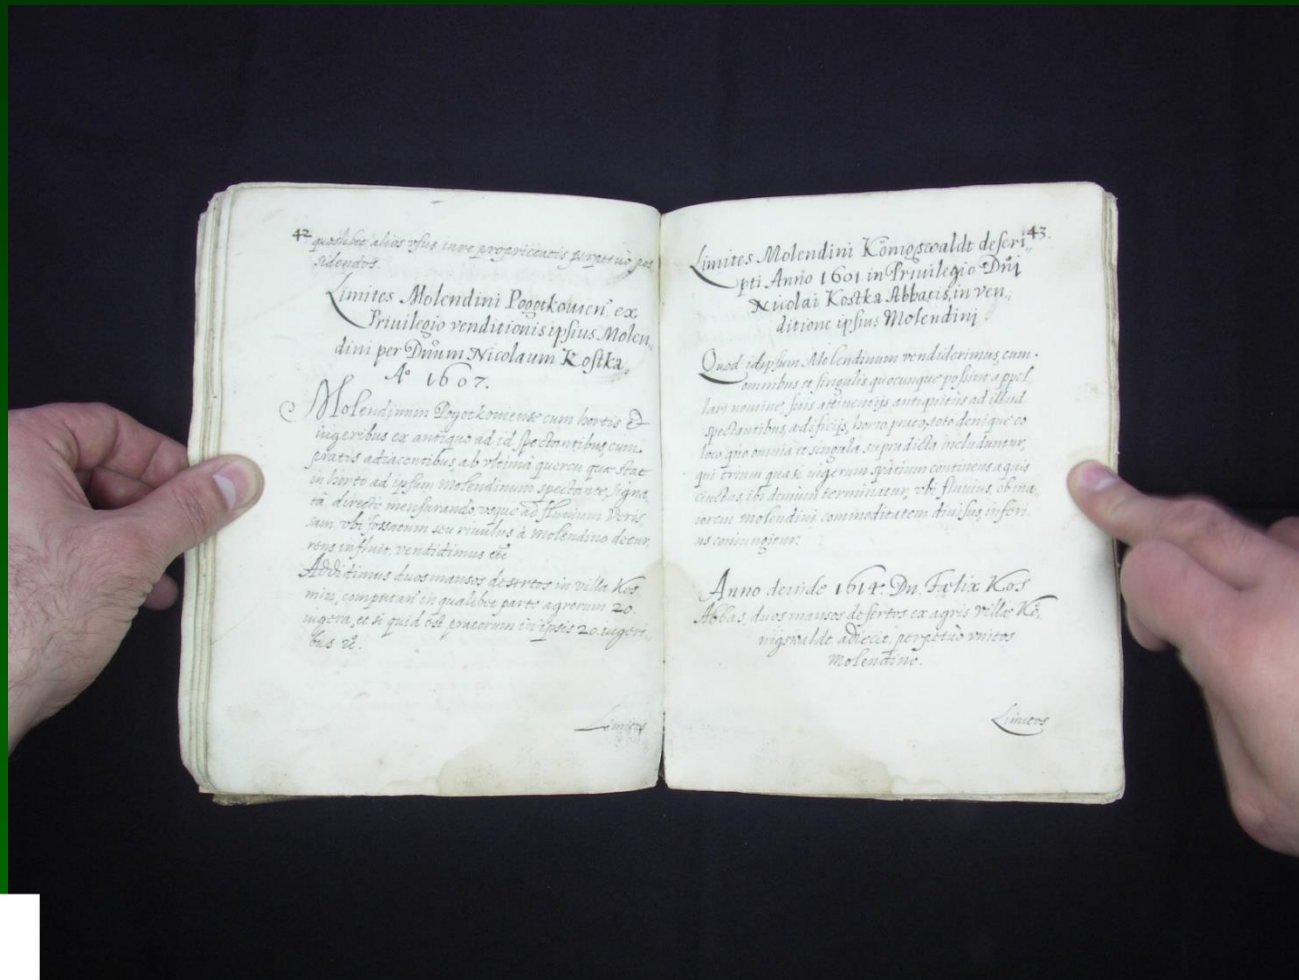 42
quoslibet alios vsus, iure proprietatis perpetuo pos,
sidendos.
Limites Molendini Pogotkouien̄ ex
Priuilegio venditionis ipsius Molen,
dini per Dn̄um Nicolaum Kostka,
Aº 1607.
Molendinum Pogotkouiense cum hortis Et
iugeribus ex antiquo ad id spectantibus, cum
pratis adiacentibus, ab vltimâ quercu quæ stat
in horto ad ipsum Molendinum spectante, signa,
tâ, directe mensurando vsque ad fluuium Veris,
sam vbi fossatum seu riuulus â Molendino decur,
rens influit, vendidimus
Addidimus duos mansos desertos in villa Kos
min, computan̄ in qualibet parte agrorum 20.
iugera, et si quid est pratorum in ipsis 20. iugeri,
bus
Limites
43.
Limites Molendini Königswaldt descri,
pti Anno 1601. in Priuilegio Dn̄i
Nicolai Kostka Abbatis, in ven,
ditione ipsius Molendini
Quod idipsum Molendinum vendiderimus cum
omnibus et singulis quocunque possint appel
lari nomine, suis attinentijs antiquitus ad illud
spectantibus, ædificijs, horto prato, toto denique eo
loco quo omnia et singula supradicta includuntur,
qui trium quasi iugerum spatium continens aquis
cinctus, ibi demum terminatur, vbi fluuius, ob ma,
iorem Molendini commoditatem diuisus, inferi,
us coniungitur.
Anno deinde 1614. Dn. Fælix Kos
Abbas, duos mansos desertos ex agris villæ Kö,
nigswaldt adiecit, perpetuo vnitos
Molendino.
Limites